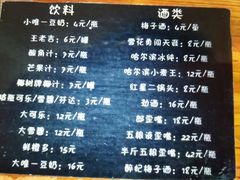 饮料
小唯一豆奶：4元/瓶
王老吉：6元/罐
酸角汁：3元/瓶
芒果汁：3元/瓶
椰树牌椰汁：3元/罐
可乐/雪碧/芬达：3元/瓶
大可乐：12元/瓶
大雪碧：12元/瓶
鲜橙多：15元
大唯一豆奶：16元
酒类
梅子酒：4元/瓶
雪花勇闯天涯：8元/瓶
哈尔滨冰纯：8元/瓶
哈尔滨小麦王：12元/瓶
红星二锅头：8元/瓶
劲酒：16元/瓶
郎歪嘴：18元/瓶
五粮液歪嘴：22元/瓶
半斤五粮歪嘴：42元/瓶
醉妃梅子酒：18元/瓶